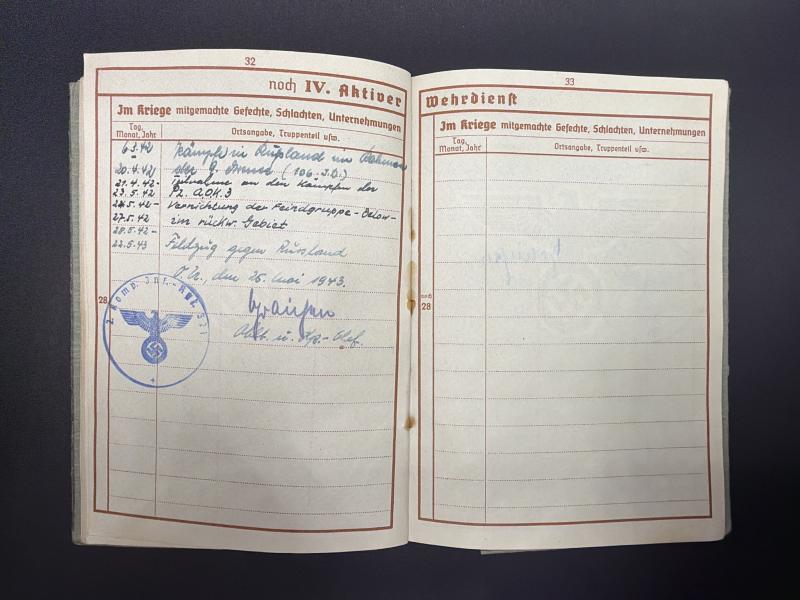 32
noch IV. Aktiver
Im Kriege mitgemachte Gefechte, Schlachten, Unternehmungen
Tag, Monat, Jahr
Ortsangabe, Truppenteil usw.
6.3.42 Kämpfe in Rußland im Rahmen
20.4.42 der 9. Armee (106. I.D.)
21.4.42- Teilnahme an den Kämpfen der
23.5.42 Pz. A.O.K. 3
24.5.42- Vernichtung der Feindgruppe-Below-
27.5.42 im rückw. Gebiet
28.5.42-
22.5.43 Feldzug gegen Russland
O.U., den 26. Mai 1943.
28
2. Komp. Inf.-Rgt.
Oblt. u. Kp.-Chef.
33
Wehrdienst
Im Kriege mitgemachte Gefechte, Schlachten, Unternehmungen
Tag, Monat, Jahr
Ortsangabe, Truppenteil usw.
noch
28